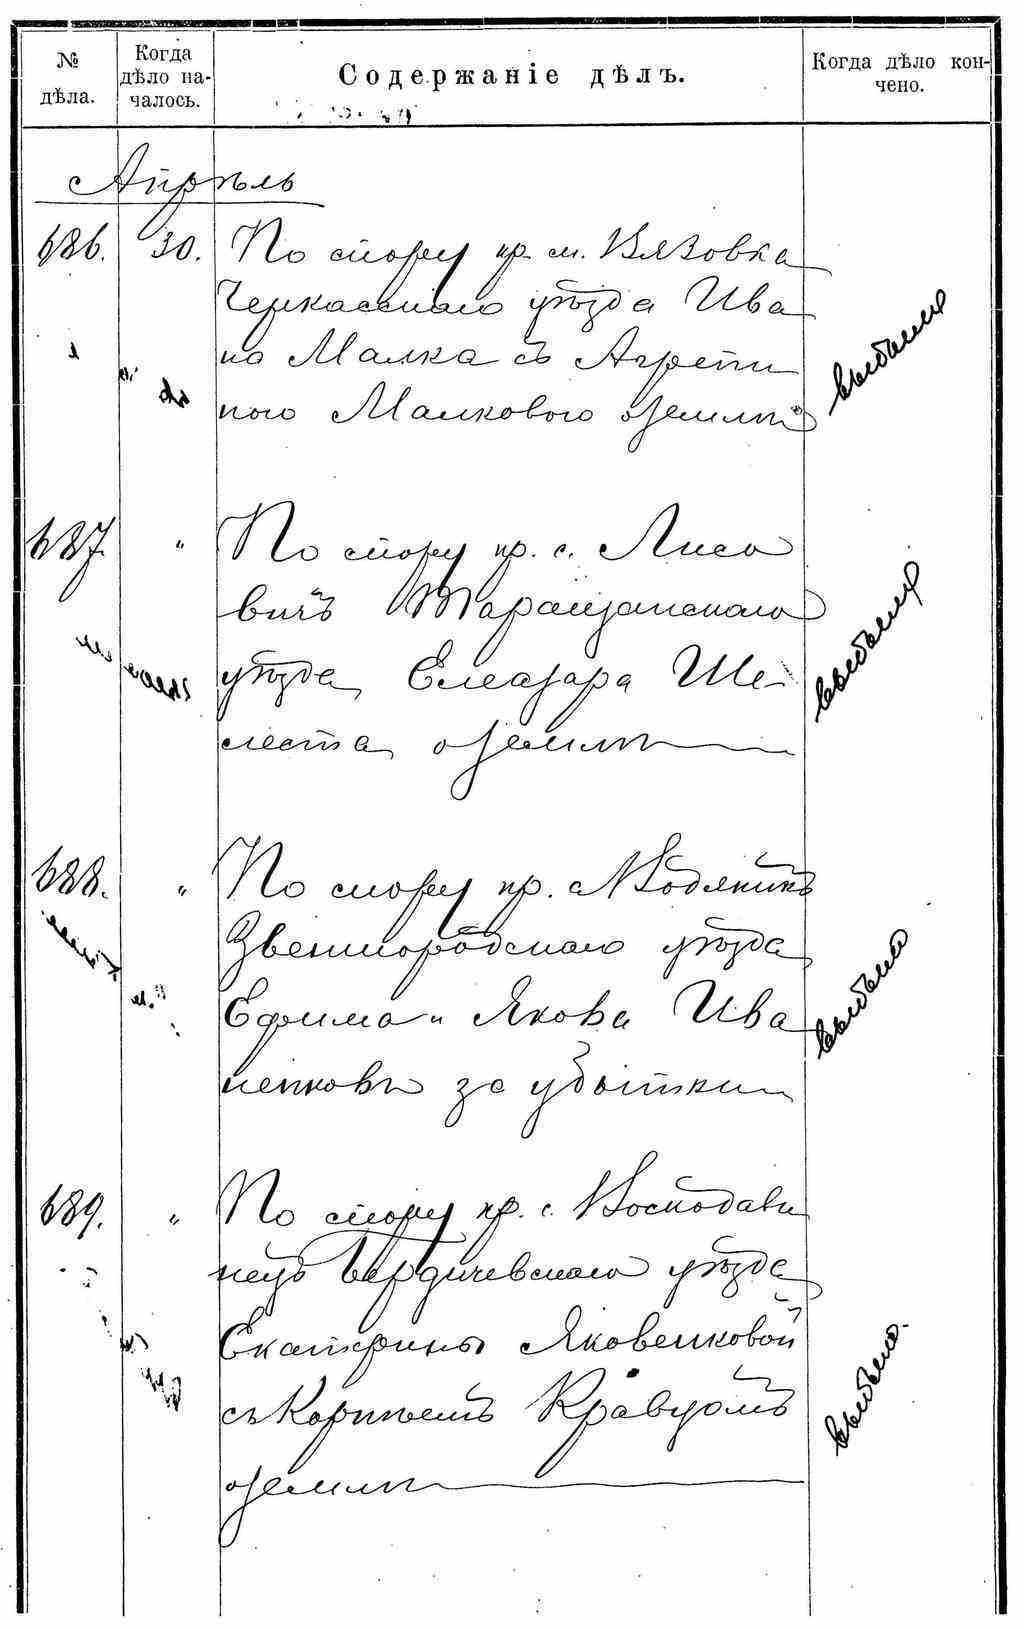 № дѣла.
Когда дѣло на-
чалось.
Содержаніе дѣлъ.
Когда дѣло кон-
чено.
Апрѣль
686. 30. По спору кр. м. Вязовка
Черкасскаго уѣзда Ива
на Малка съ Агрепи
ною Малковою о землѣ
выбыли
687. " По спору кр. с. Лиса
вичъ Таращанскаго
уѣзда Елеазара Ше-
леста о землѣ
выбыли
688. " По спору кр. с. Водяникъ
Звенигородскаго уѣзда
Ефима и Якова Ива
ненковъ за убытки
выбыло
689. " По спору кр. с.
Бердичевскаго уѣзда
Екатерины Яковенковой
съ Корнѣемъ Кравцомъ
о землѣ
выбыло.